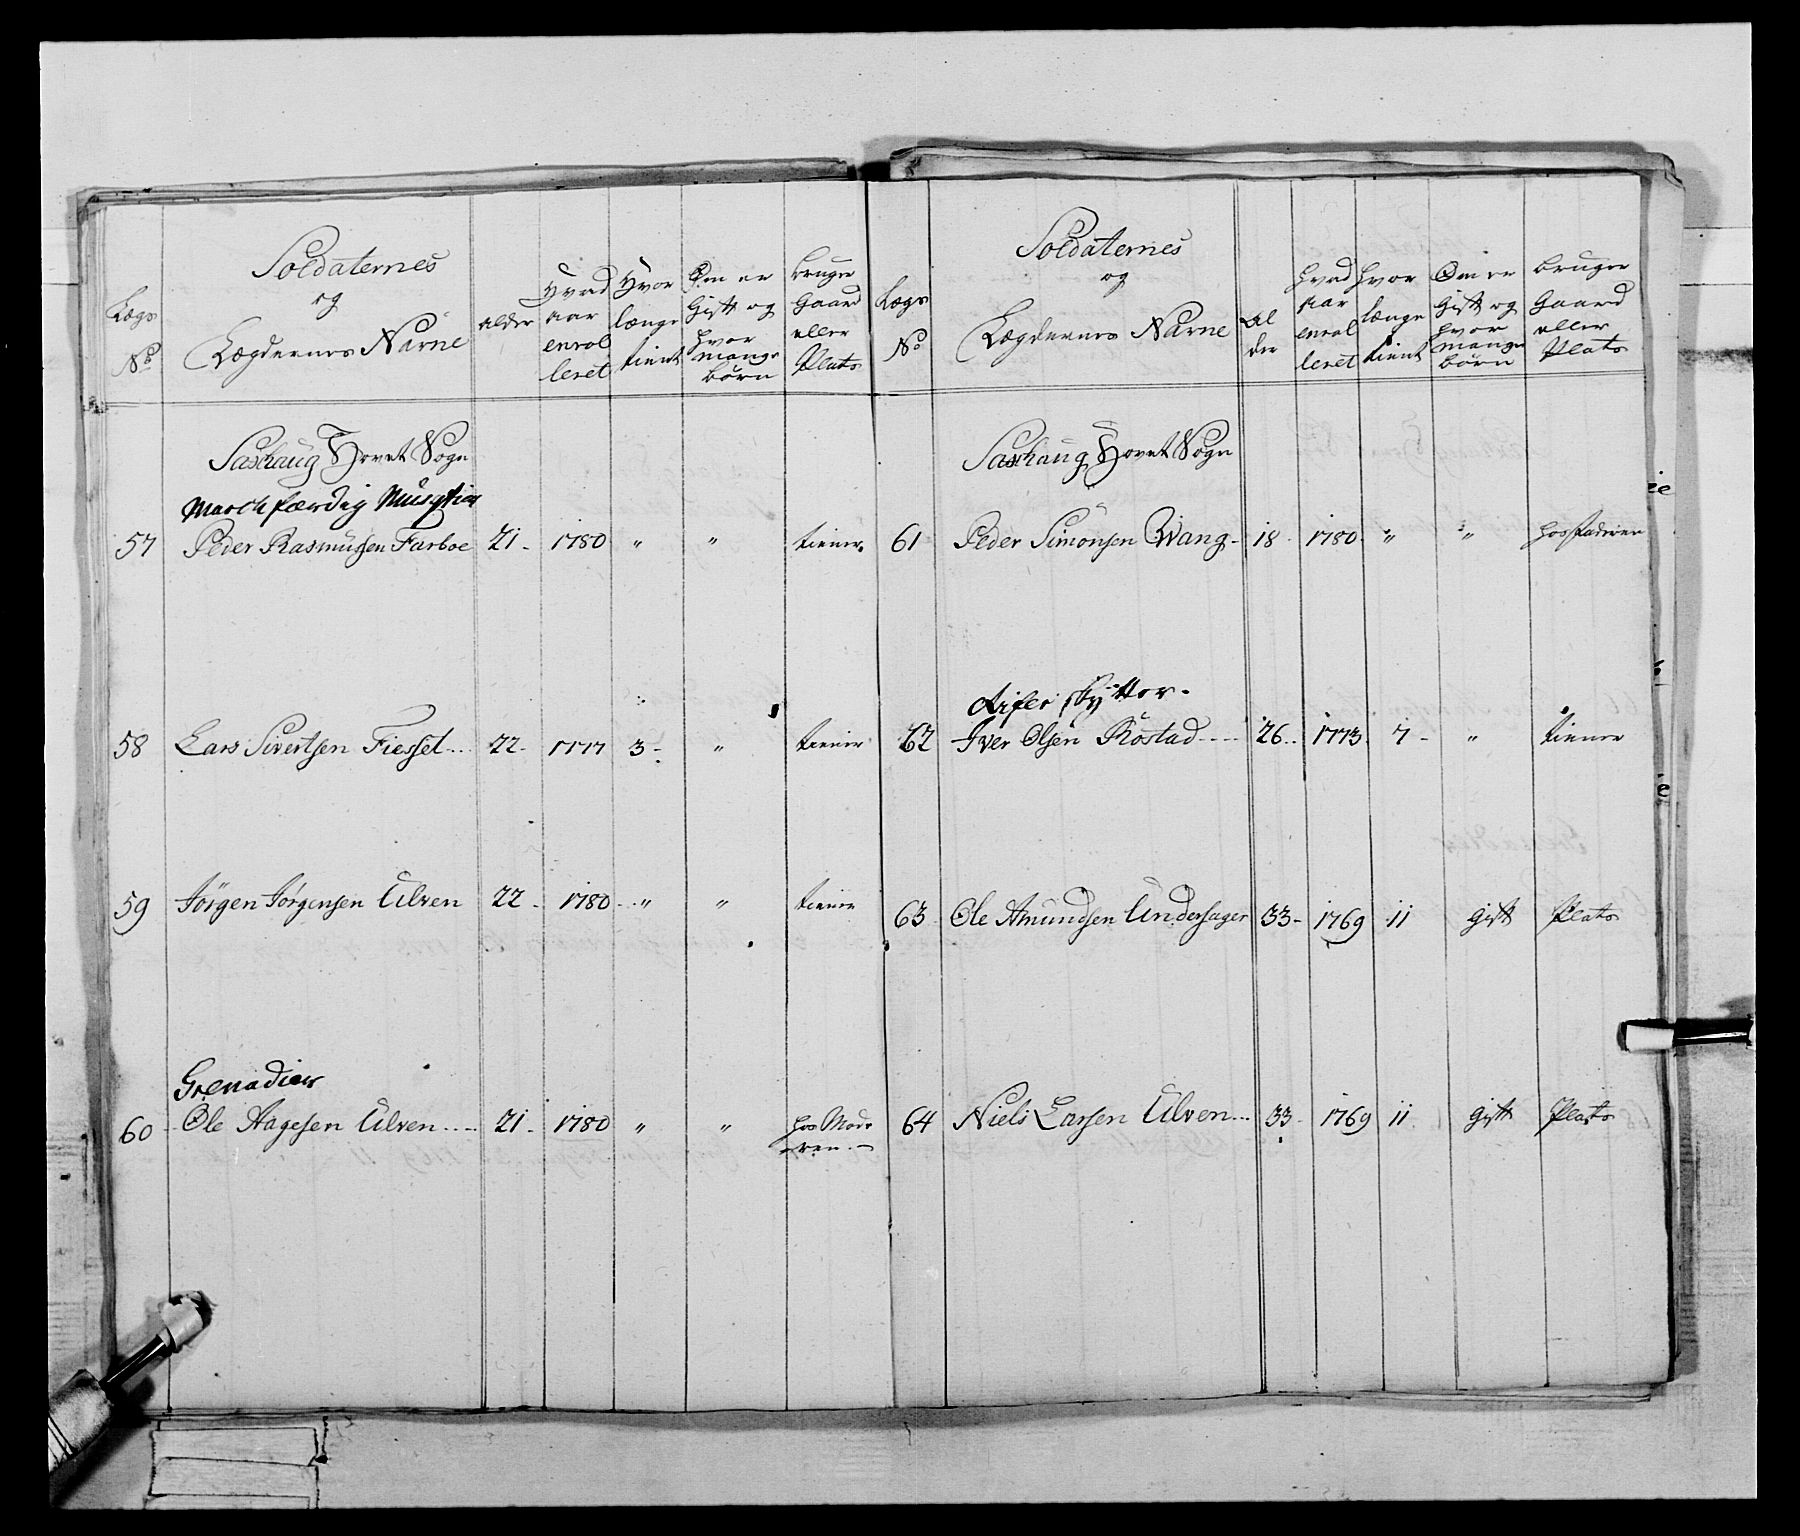 Lægs
No
Soldaternes
og
Lægdernes Navne
alder
Hvad
aar
enrol
leret
Hvor
længe
tient
Om er
Gift og
hvor
mange
børn
bruger
Gaard
eller
Plats
Saxhaug Hovet Sogn
March færdig Musqtier
57 Peder Rasmussen Farboe 21 - 1780 " " tiener.
58 Lars Sivertsen Fiesset... 22 - 1777 3 - " tiener
59 Jörgen Jörgensen Ulven 22 - 1780 - " " tiener
Grenadier
60 - Ole Aagesen Ulven.... 21 - 1780 " " hos Mode
ren. -
Lægs
No
Soldaternes
og
Lægdernes Navne
Al
der
hvad
aar
enrol
leret
hvor
længe
tient
Om er
Gift og
hvor
mange
børn
bruger
Gaard
eller
Plats
Saxhaug Hovet Sogn
61 Peder Simonsen Wang - 18 - 1780 - " " hos faderen
Rifle skytter.
62 Iver Olsen Röstad ---- 26 .. 1773 - 7 - " tiener
63 Ole Amundsen Undersager 33 - 1769 11 gift Plats
64 Niels Larsen Ulven... 33 - 1769 11 gift Plats